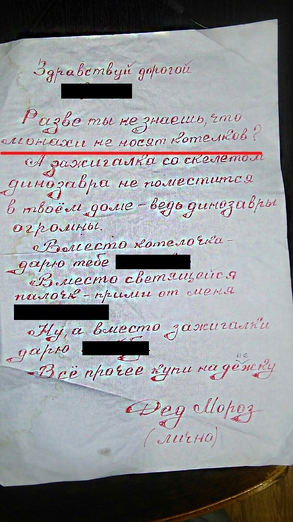 Здравствуй дорогой
Разве ты не знаешь, что
монахи не носят котелков?
А зажигалка со скелетом
динозавра не поместится
в твоём доме - ведь динозавры
огромны.
«Вместо котелочка -
дарю тебе
«Вместо светящейся
палочк - прими от меня
«Ну, а вместо зажигалки
дарю
«Всё прочее купи на дёжку
Дед Мороз
(лично)